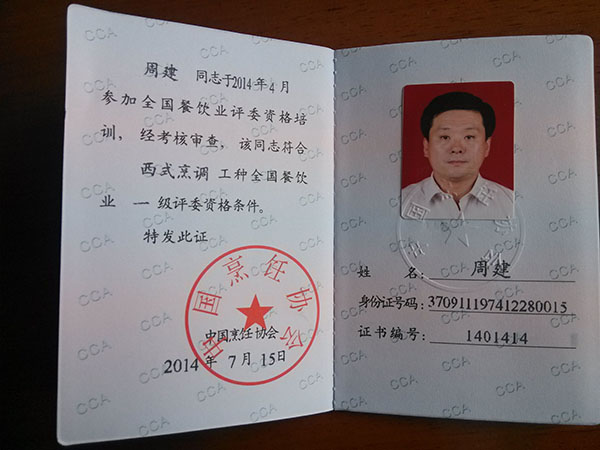 周建 同志于2014年4月
参加全国餐饮业评委资格培
训，经考核审查，该同志符合
西式烹调 工种全国餐饮
业 一 级评委资格条件。
特发此证
中国烹饪协会
中国烹饪协会
2014年7月15日
姓 名：周建
身份证号码：370911197412280015
证书编号：1401414
CCA